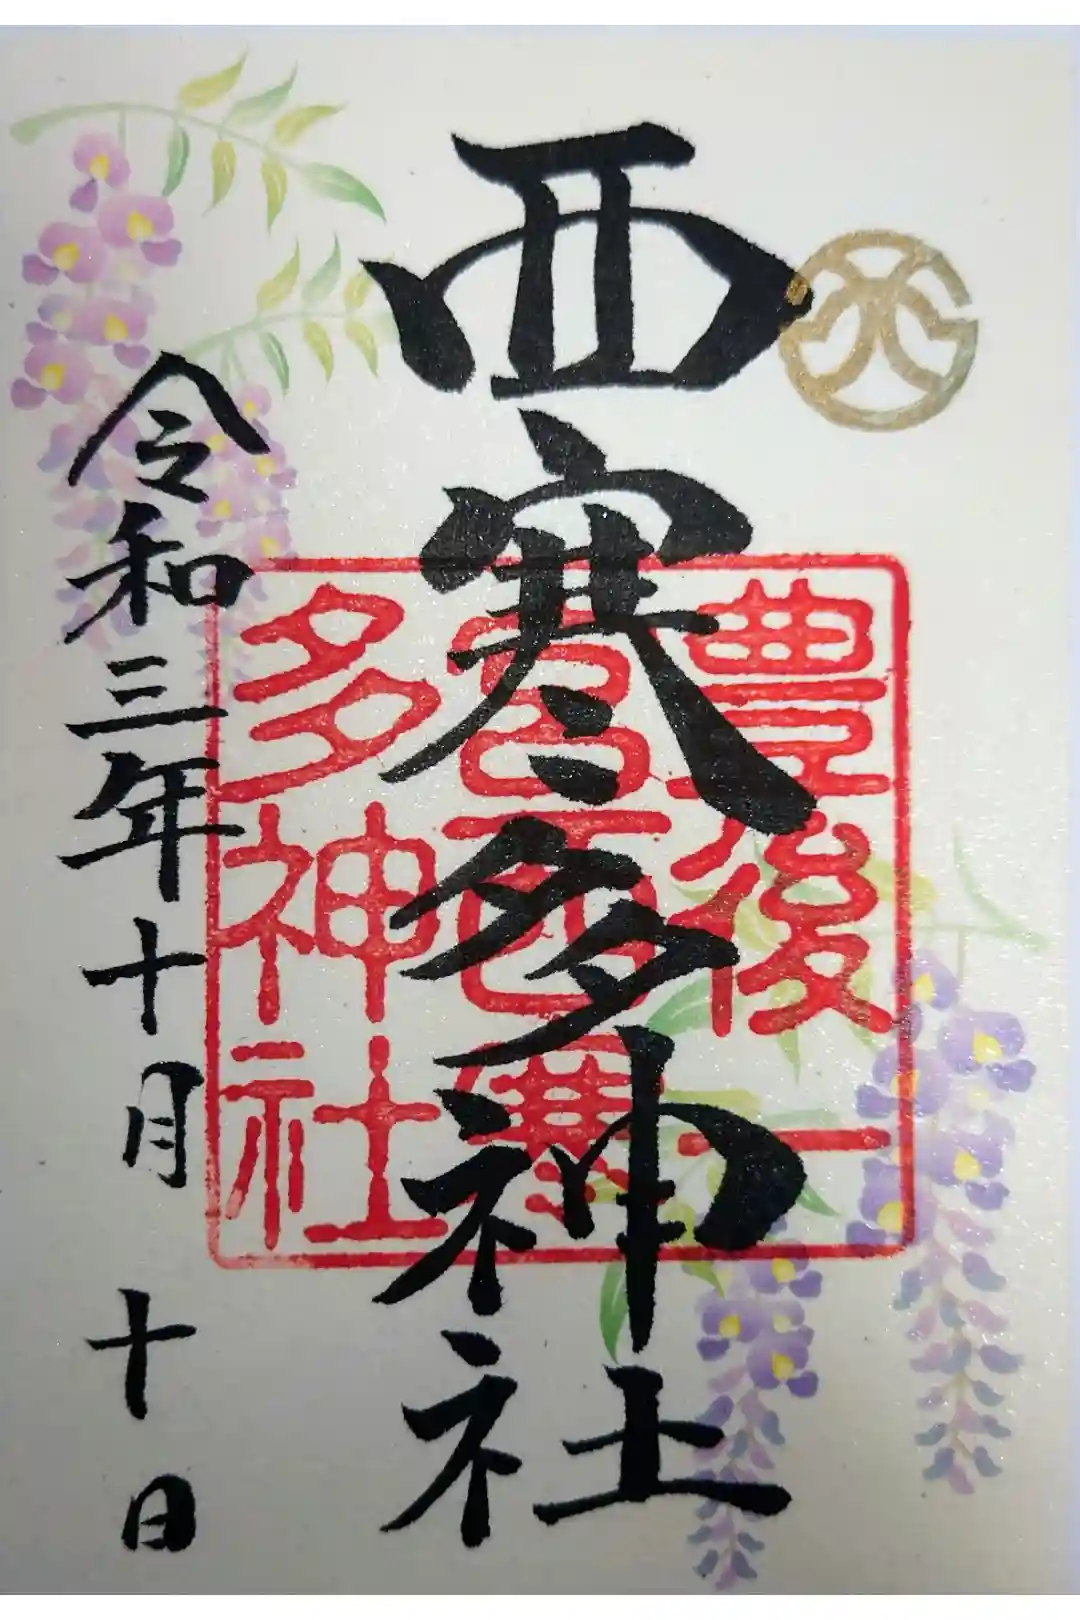 西寒多神社
豊後一
宮西寒
多神社
令和三年十月十日